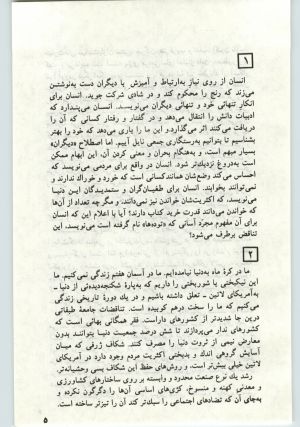 ۱
انسان از روی نیاز به‌ارتباط و آمیزش با دیگران دست به‌نوشتن
می‌زند که رنج را محکوم کند و در شادی شرکت جوید. انسان برای
انکار تنهائی خود و تنهائی دیگران می‌نویسد. انسان می‌پندارد که
ادبیات دانش را انتقال می‌دهد و در گفتار و رفتار کسانی که آن را
دریافت می‌کنند اثر می‌گذارد و این ما را یاری می‌دهد که خود را بهتر
بشناسیم تا بتوانیم به‌رستگاری جمعی نایل آییم. اما اصطلاح «دیگران»
بسیار مبهم است، و به‌هنگام بحران و معنی کردن آن، این ابهام ممکن
است به‌دروغ نزدیک‌تر شود. انسان در واقع برای مردمی می‌نویسد که
احساس می‌کند وضع‌شان همانند کسانی است که خورد و خوراک ندارند و
نمی‌توانند بخوابند. انسان برای طغیان‌گران و ستمدیدگان این دنیا
می‌نویسد، که اکثریت‌شان خواندن نیز نمی‌دانند، و مگر چه تعداد از آن‌ها
که خواندن می‌دانند قدرت خرید کتاب دارند؟ آیا با اعلام این که انسان
برای آن مفهوم مجرد آسانی که «توده‌ها» نام گرفته است می‌نویسد، این
تناقض برطرف می‌شود؟
۲
ما در کرهٔ ماه به‌دنیا نیامده‌ایم. ما در آسمان هفتم زندگی نمی‌کنیم. ما
این نیکبختی یا شوربختی را داریم که به‌پارهٔ شکنجه‌دیده‌ئی از دنیا ـ
به‌آمریکای لاتین ـ تعلق داشته باشیم و در یک دورهٔ تاریخی زندگی
می‌کنیم که ما را سخت درهم کوبیده است. تناقضات جامعهٔ طبقاتی
درین جا شدیدتر از کشورهای داراست. فقر همگانی بهائی است که
کشورهای ندار می‌پردازند تا شش درصد جمعیت دنیا بتوانند بدون
معارض نیمی از ثروت دنیا را مصرف کنند. شکاف ژرفی که میان
آسایش گروهی اندک و بدبختی اکثریت مردم وجود دارد در آمریکای
لاتین خیلی بیش‌تر است، و روش‌های حفظ این شکاف بسی وحشیانه‌تر.
رشد یک نوع صنعت محدود و وابسته بر روی ساختارهای کشاورزی
و معدنی کهنه و منسوخ، کژی‌های اساسی آن‌ها را دگرگون نکرده و
به‌جای آن که تضادهای اجتماعی را سبک‌تر کند آن را تیزتر ساخته است.
۵